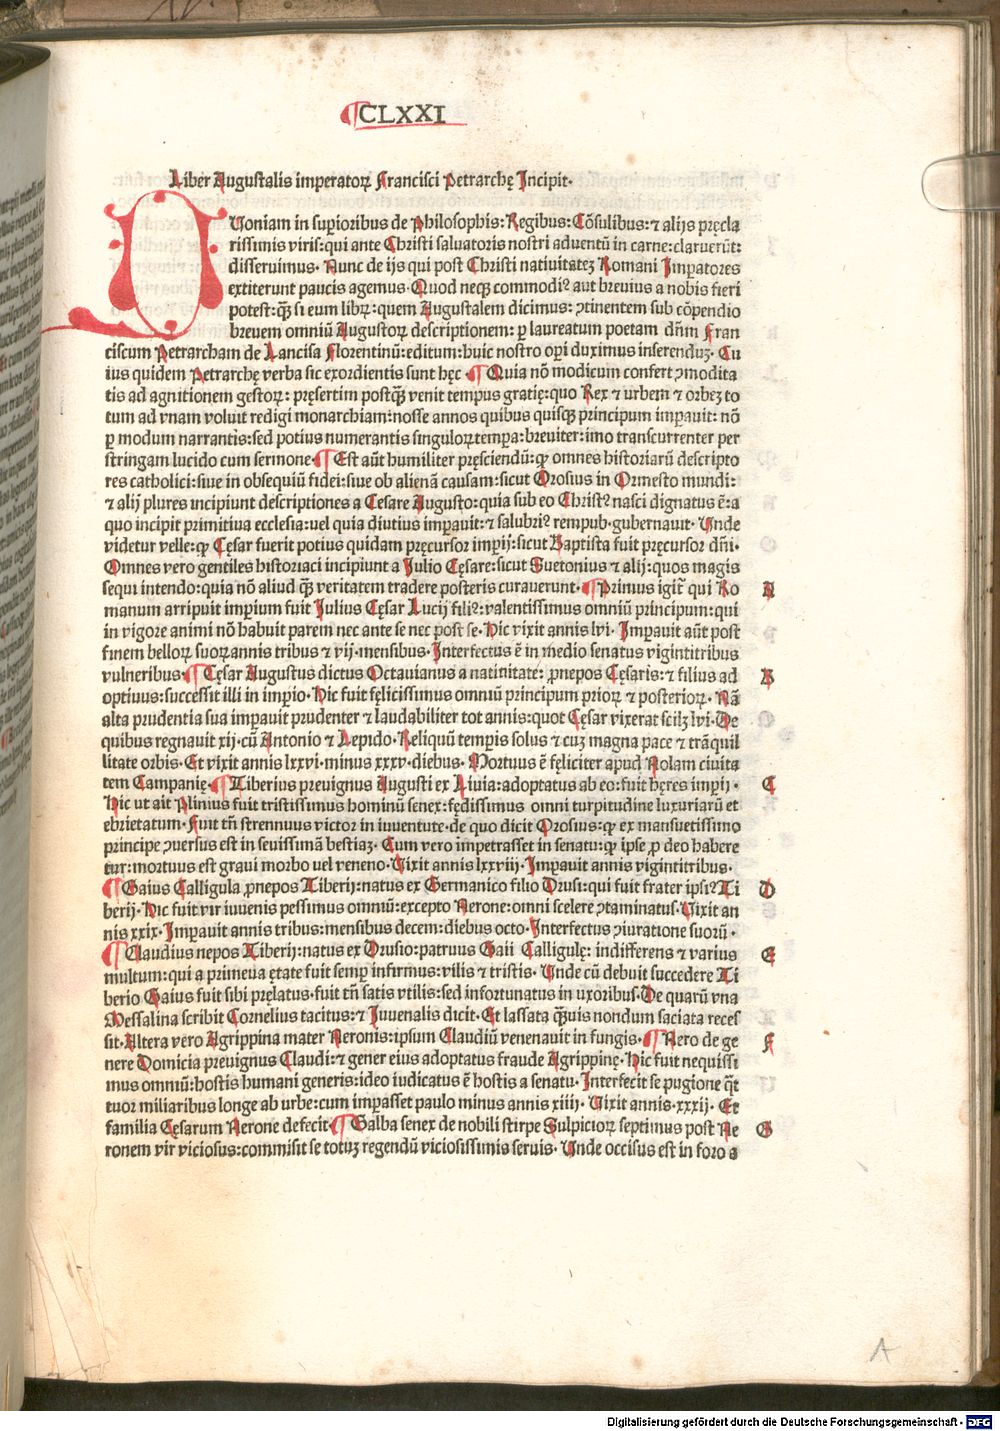 ¶CLXXI
Liber Augustalis imperatoꝝ Francisci Petrarchę Incipit.
QUoniam in supioribus de Philosophis: Regibus: Cõsulibus: ⁊ alijs pręcla
rissimis viris: qui ante Christi saluatoris nostri aduentũ in carne: claruerũt:
disseruimus. Nunc de ijs qui post Christi natiuitateʒ Romani Imperatores
extiterunt paucis agemus. Quod neqʒ commodi⁹ aut breuius a nobis fieri
potest: qʒ̃ si eum librꝝ: quem Augustalem dicimus: ꝯtinentem sub cõpendio
breuem omniũ Augustoꝝ descriptionem: ꝑ laureatum poetam dñm Fran
ciscum Petrarcham de Lancisa Florentinũ: editum: huic nostro opi duximus inserenduʒ. Cu
ius quidem Petrarchę verba sic exordientis sunt hęc. ¶ Quia nõ modicum confert ꝯmodita
tis ad agnitionem gestoꝝ: pręsertim postqʒ̃ venit tempus gratię: quo Rex ⁊ urbem ⁊ orbeʒ to
tum ad vnam voluit redigi monarchiam: nosse annos quibus quisqʒ principum impauit: nõ
ꝑ modum narrantis: sed potius numerantis singuloꝝ tempa: breuiter: imo transcurrenter per
stringam lucido cum sermone. ¶ Est aũt humiliter pręsciendũ: ꝙ omnes historiarũ descripto
res catholici: siue in obsequiũ fidei: siue ob alienã causam: sicut Orosius in Ormesto mundi:
⁊ alij plures incipiunt descriptiones a Cesare Augusto: quia sub eo Christ⁹ nasci dignatus ẽ: a
quo incipit primitiua ecclesia: vel quia diutius impauit: ⁊ salubri⁹ rempub. gubernauit. Unde
videtur velle: ꝙ Cęsar fuerit potius quidam pręcursor impij: sicut Baptista fuit pręcursor dñi.
Omnes vero gentiles historiaci incipiunt a Julio Cęsare: sicut Suetonius ⁊ alij: quos magis
sequi intendo: quia nõ aliud qʒ̃ veritatem tradere posteris curauerunt. ¶ Primus igit̃ qui Ro
A
manum arripuit impium fuit Julius Cęsar Lucij fili⁹: valentissimus omniũ principum: qui
in vigore animi nõ habuit parem nec ante se nec post se. Hic vixit annis lvi. Impauit aũt post
finem belloꝝ suoꝝ annis tribus ⁊ vij. mensibus. Interfectus ẽ in medio senatus vigintitribus
vulneribus. ¶ Cęsar Augustus dictus Octauianus a natiuitate: ꝓnepos Cęsaris: ⁊ filius ad
B
optiuus: successit illi in impio. Hic fuit fęlicissimus omniũ principum prioꝝ ⁊ posterioꝝ. Nã
alta prudentia sua impauit prudenter ⁊ laudabiliter tot annis: quot Cęsar vixerat scilʒ lvi. De
quibus regnauit xij. cũ Antonio ⁊ Lepido. Reliquũ tempis solus ⁊ cuʒ magna pace ⁊ trãquil
litate orbis. Et vixit annis lxxvi. minus xxxv. diebus. Mortuus ẽ fęliciter apud Nolam ciuita
tem Campanię. ¶ Tiberius preuignus Augusti ex Liuia: adoptatus ab eo: fuit hęres impij.
C
Hic ut ait Plinius fuit tristissimus hominũ senex: fędissimus omni turpitudine luxuriarũ et
ebrietatum. Fuit tñ strennuus victor in iuuentute. de quo dicit Orosius: ꝙ ex mansuetissimo
principe ꝯuersus est in seuissimã bestiaʒ. Cum vero impetrasset in senatu: ꝙ ipse ꝓ deo habere
tur: mortuus est graui morbo vel veneno. Vixit annis lxxviij. Impauit annis vigintitribus.
¶ Gaius Calligula ꝓnepos Tiberij: natus ex Germanico filio Drusi: qui fuit frater ipsi⁹ Ti
D
berij. Hic fuit vir iuuenis pessimus omniũ: excepto Nerone: omni scelere ꝯtaminatus. Vixit an
nis xxix. Impauit annis tribus: mensibus decem: diebus octo. Interfectus ꝯiuratione suorũ.
¶ Claudius nepos Tiberij: natus ex Drusio: patruus Gaii Calligulę: indifferens ⁊ varius
E
multum: qui a primeua ętate fuit semp infirmus: vilis ⁊ tristis. Unde cũ debuit succedere Ti
berio Gaius fuit sibi pręlatus. fuit tñ satis vtilis: sed infortunatus in uxoribus. De quarũ vna
Messalina scribit Cornelius tacitus: ⁊ Juuenalis dicit. Et lassata qʒ̃uis nondum saciata reces
sit. Altera vero Agrippina mater Neronis: ipsum Claudiũ venenauit in fungis. ¶ Nero de ge
F
nere Domicia preuignus Claudi: ⁊ gener eius adoptatus fraude Agrippinę. Hic fuit nequissi
mus omniũ: hostis humani generis: ideo iudicatus ẽ hostis a senatu. Interfecit se pugione q̃t
tuor miliaribus longe ab urbe: cum impasset paulo minus annis xiiij. Vixit annis. xxxij. Et
familia Cęsarum Nerone defecit. ¶ Galba senex de nobili stirpe Sulpicioꝝ septimus post Ne
G
ronem vir viciosus: commisit se totuʒ regendũ viciosissimis seruis. Unde occisus est in foro a
A
Digitalisierung gefördert durch die Deutsche Forschungsgemeinschaft - DFG